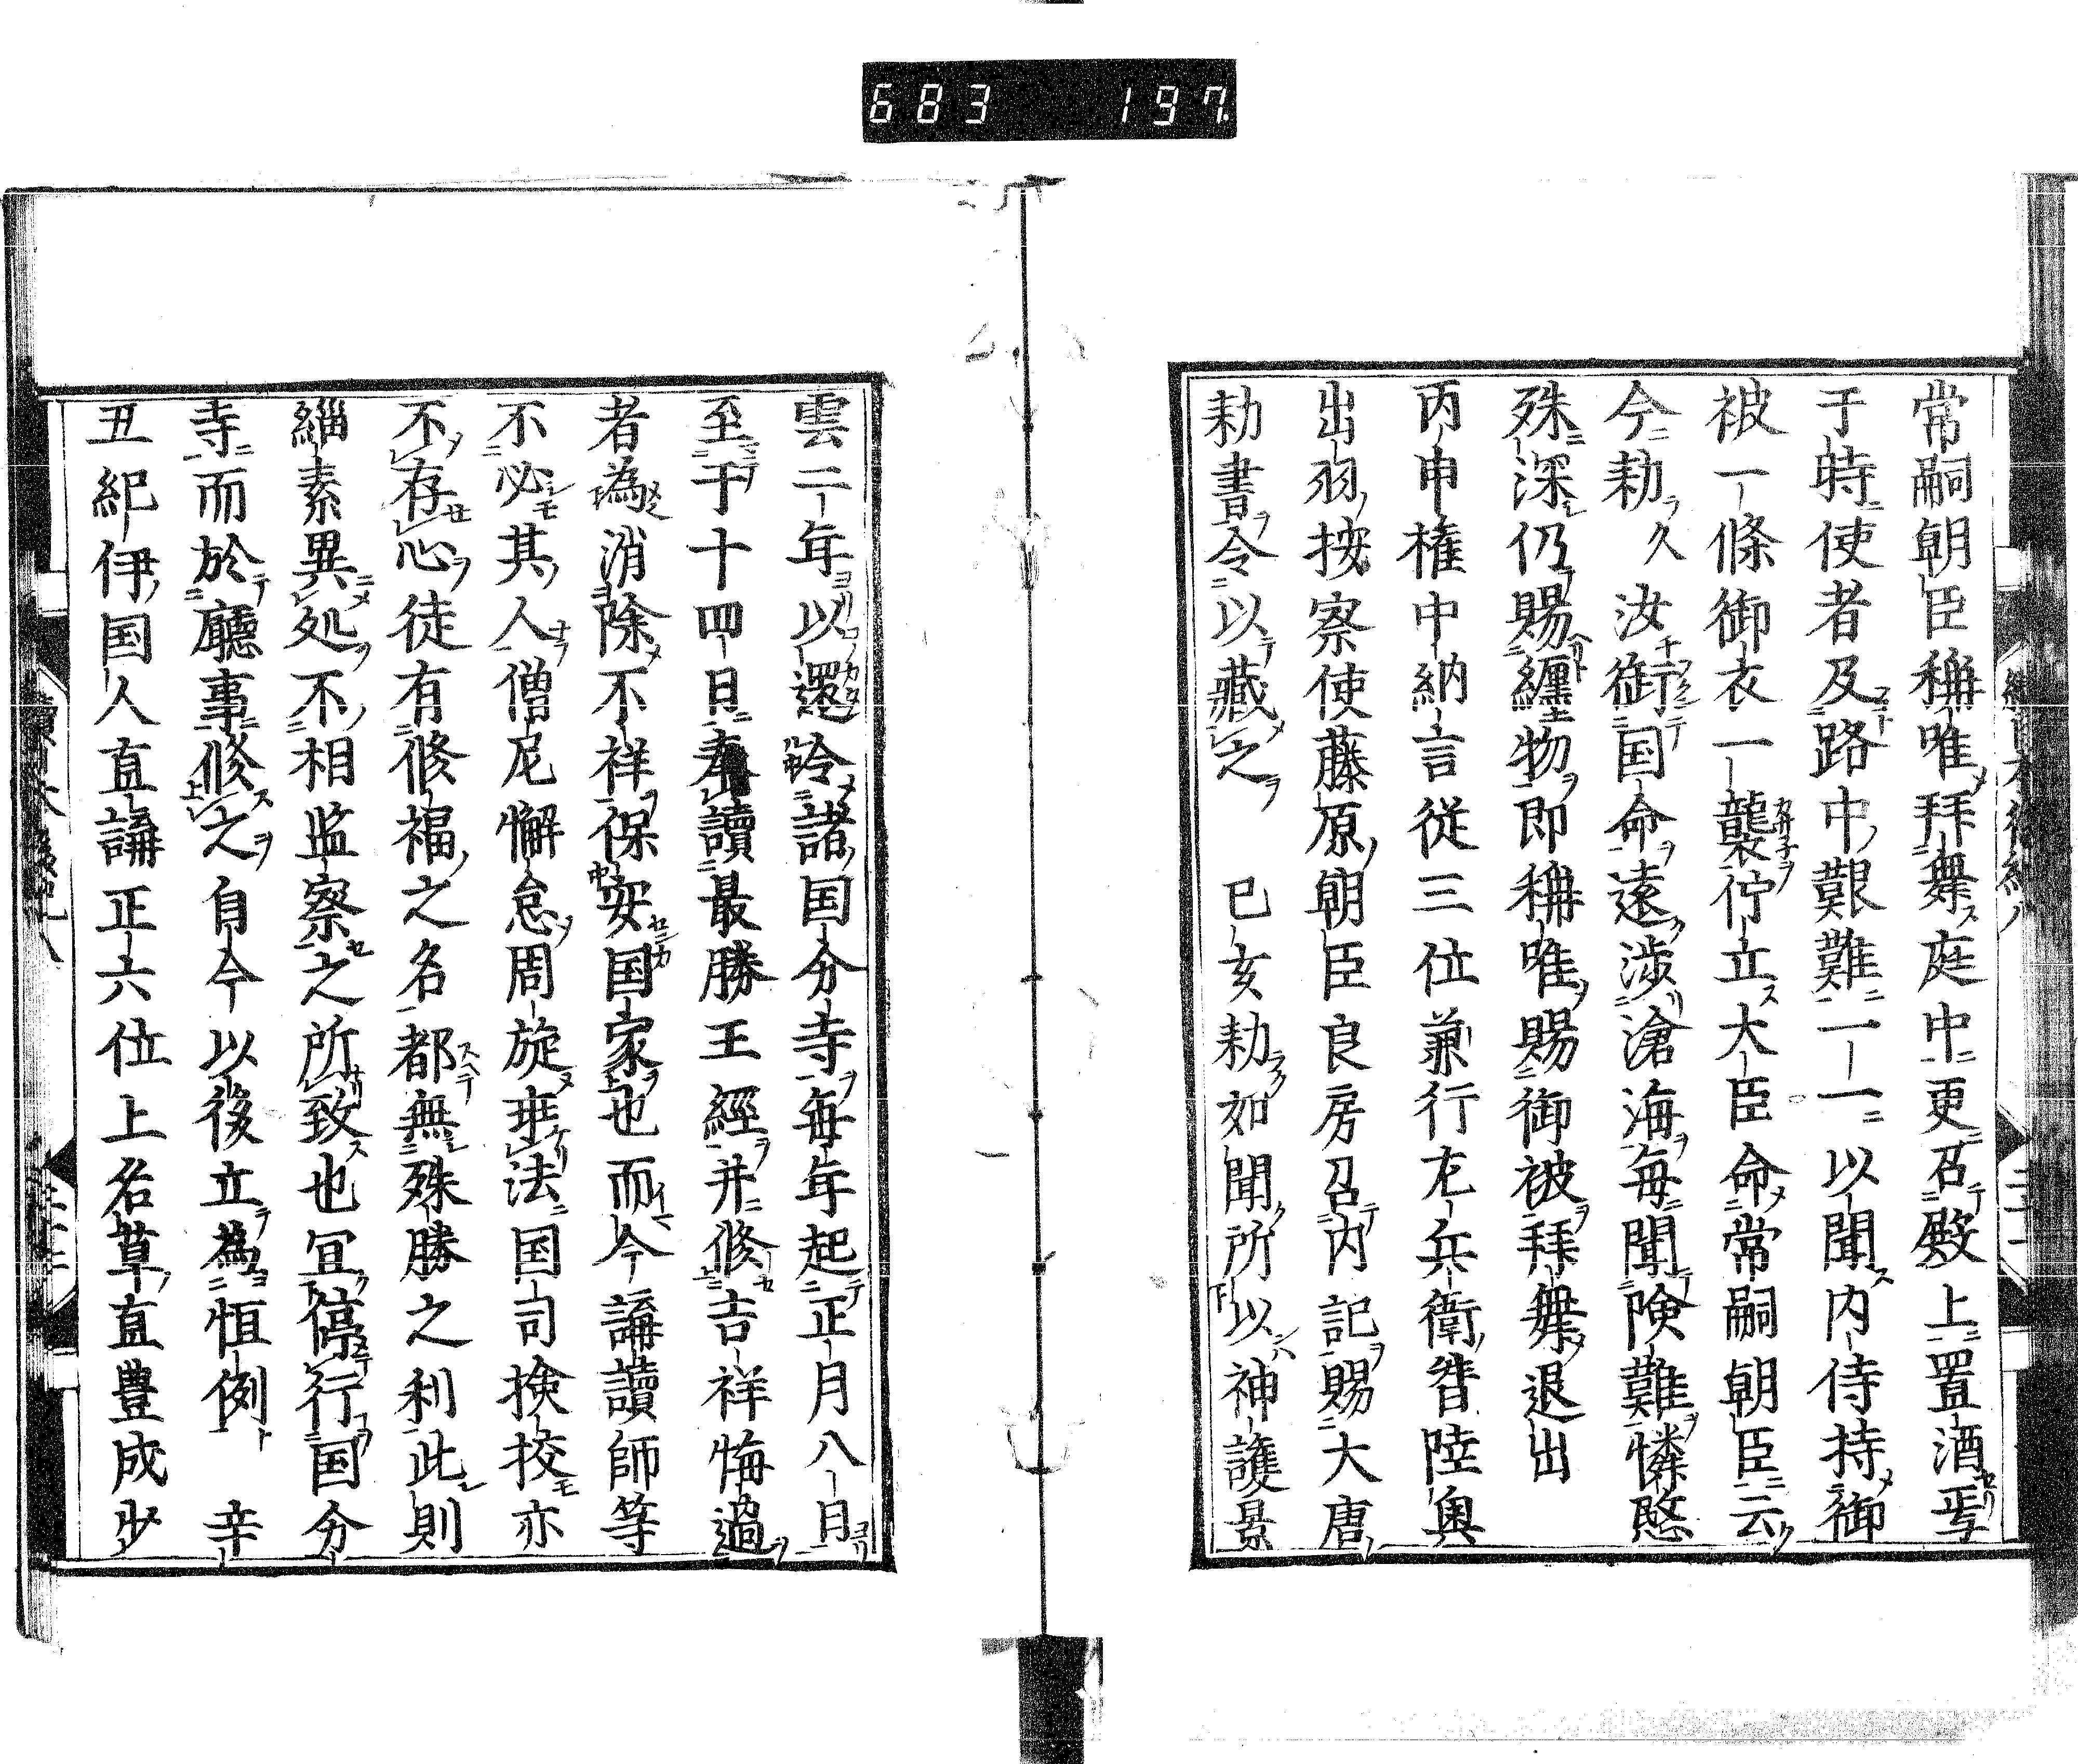 683 197
常嗣朝臣稱唯拜舞庭中更召殿上置酒焉
于時使者及路中艱難一一以聞内侍持御
被一條御衣一襲佇立大臣命常嗣朝臣云
今勅久汝御国命遠渉滄海毎聞険難憐愍
殊深仍賜纒物即稱唯賜御被拜舞退出
丙申権中納言従三位兼行左兵衛督陸奥
出羽按察使藤原朝臣良房召内記賜大唐
勅書令以藏之 已亥勅如聞所以神護景
雲二年以還令諸国分寺毎年起正月八日
至于十四日奉讀最勝王經并修吉祥悔過
者為消除不祥保安国家也而今講讀師等
不必其人僧尼懈怠周旋乖法国司検挍亦
不存心徒有修福之名都無殊勝之利此則
緇素異処不相監察之所致也冝停行国分
寺而於廳事修之自今以後立為恒例 辛
丑紀伊国人直講正六位上名草直豊成少